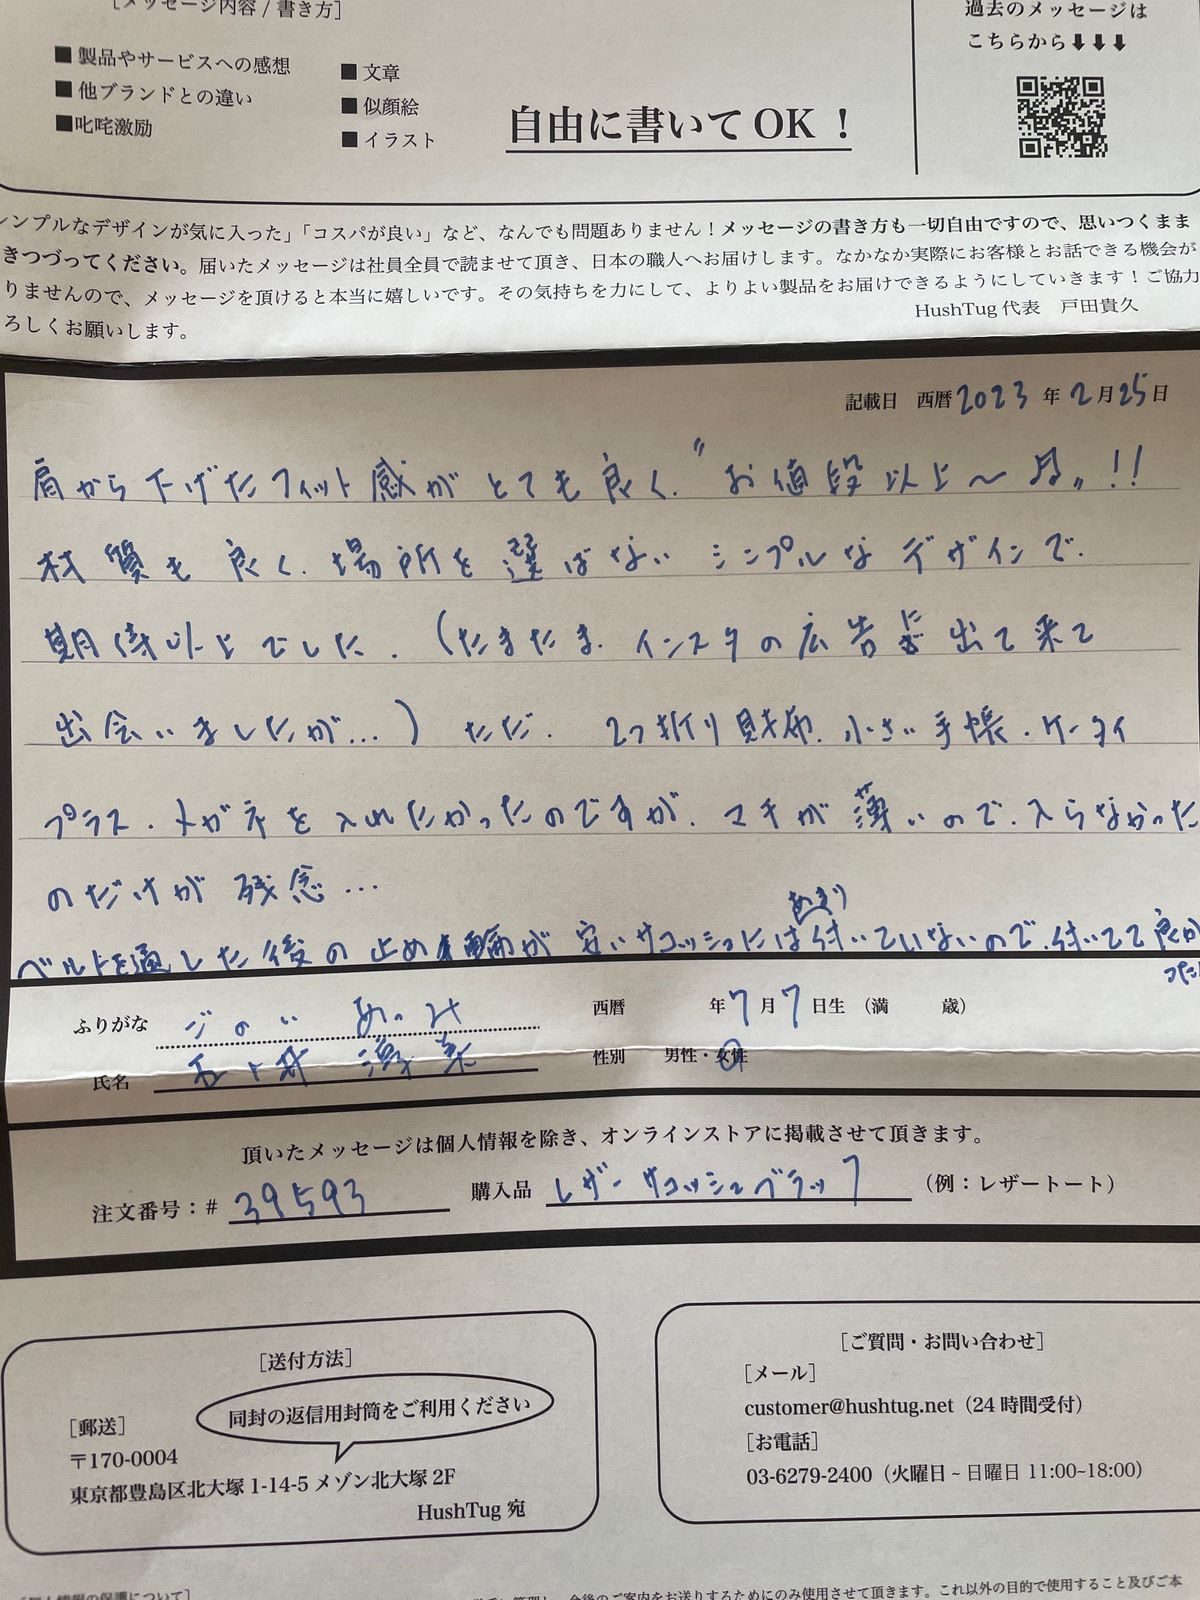 [メッセージ内容 / 書き方]
■ 製品やサービスへの感想
■ 他ブランドとの違い
■叱咤激励
■ 文章
■ 似顔絵
■ イラスト
自由に書いて OK ！
過去のメッセージは
こちらから⬇⬇⬇
ンプルなデザインが気に入った」「コスパが良い」など、なんでも問題ありません！メッセージの書き方も一切自由ですので、思いつくまま
きつづってください。届いたメッセージは社員全員で読ませて頂き、日本の職人へお届けします。なかなか実際にお客様とお話できる機会が
りませんので、メッセージを頂けると本当に嬉しいです。その気持ちを力にして、よりよい製品をお届けできるようにしていきます！ご協力
ろしくお願いします。
HushTug 代表　戸田貴久
記載日　西暦 2023 年 2 月 25 日
肩から下げたフィット感がとても良く、〝お値段以上〜♬〟!!
材質も良く、場所を選ばない シンプルなデザインで、
期待以上でした。(たまたま、インスタの広告に出て来て
出会いましたが…) ただ、2つ折り財布、小さい手帳、ケータイ
プラス、メガネを入れたかったのですが、マチが薄いので、入らなかった
のだけが残念…
ベルトを通した後の止め輪が安いサコッシュにはあまり付いていないので、付いてて良か
ったです
ふりがな
西暦　年 7 月 7 日生（満　歳）
氏名
性別　男性・女性
頂いたメッセージは個人情報を除き、オンラインストアに掲載させて頂きます。
注文番号：# 39593　購入品　レザーサコッシュブラック（例：レザートート）
[送付方法]
同封の返信用封筒をご利用ください
[郵送]
〒170-0004
東京都豊島区北大塚 1-14-5 メゾン北大塚 2F
HushTug 宛
[ご質問・お問い合わせ]
[メール]
customer@hushtug.net（24 時間受付）
[お電話]
03-6279-2400（火曜日 ~ 日曜日 11:00~18:00）
[個人情報の保護について]
管理し、今後のご案内をお送りするためにのみ使用させて頂きます。これ以外の目的で使用すること及びご本